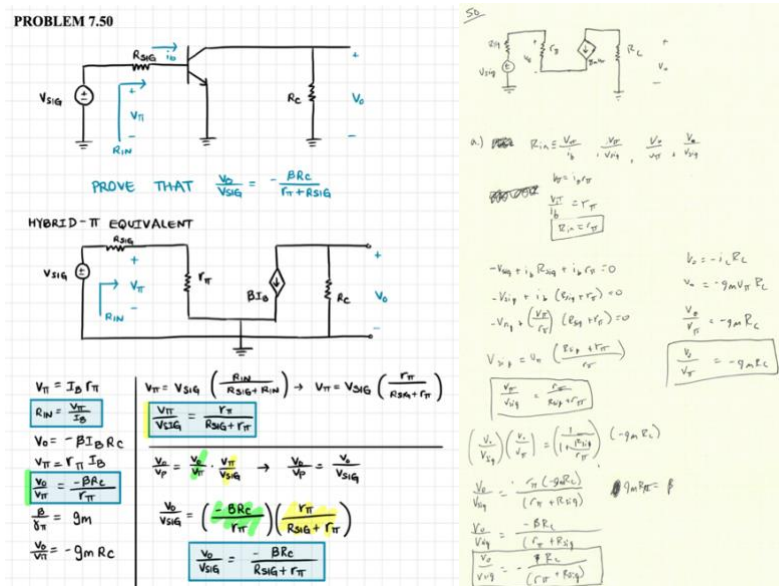 PROBLEM 7.50
RSIG
ib
VSIG
+
Vπ
-
RIN
RC
+
Vo
-
PROVE THAT Vo/VSIG = - βRC/(rπ+RSIG)
HYBRID-π EQUIVALENT
RSIG
VSIG
+
Vπ
-
RIN
rπ
βIB
RC
+
Vo
-
Vπ = IB rπ
RIN = Vπ/IB
Vo = -βIB RC
Vπ = rπ IB
Vo/Vπ = -βRC/rπ
β/rπ = gm
Vo/Vπ = -gm RC
Vπ = VSIG (RIN/(RSIG+RIN)) → Vπ = VSIG (rπ/(RSIG+rπ))
Vπ/VSIG = rπ/(RSIG+rπ)
Vo/VP = Vo/Vπ · Vπ/VSIG → Vo/VP = Vo/VSIG
Vo/VSIG = (-βRC/rπ)(rπ/(RSIG+rπ))
Vo/VSIG = - βRC/(RSIG+rπ)
50
Vsig
RL
+
Vo
-
a.) Rin ≡ Vπ/ib , Vπ/Vsig , Vo/Vπ , Vo/Vsig
Vπ/ib = rπ
Rin = rπ
-Vsig + ib Rsig + ib rπ = 0
-Vsig + ib (Rsig + rπ) = 0
-Vsig + (Vπ/rπ) (Rsig + rπ) = 0
Vsig = Vπ ((Rsig + rπ)/rπ)
Vπ/Vsig = rπ/(Rsig + rπ)
Vo = -ic RL
Vo = -gm Vπ RL
Vo/Vπ = -gm RL
Vo/Vπ = -gm RL
(-gm RL)
Vo/Vsig = rπ (-gm RL)/(rπ + Rsig)
Vo/Vsig = -βRL/(rπ + Rsig)
Vo/Vsig = - βRL/(rπ + Rsig)